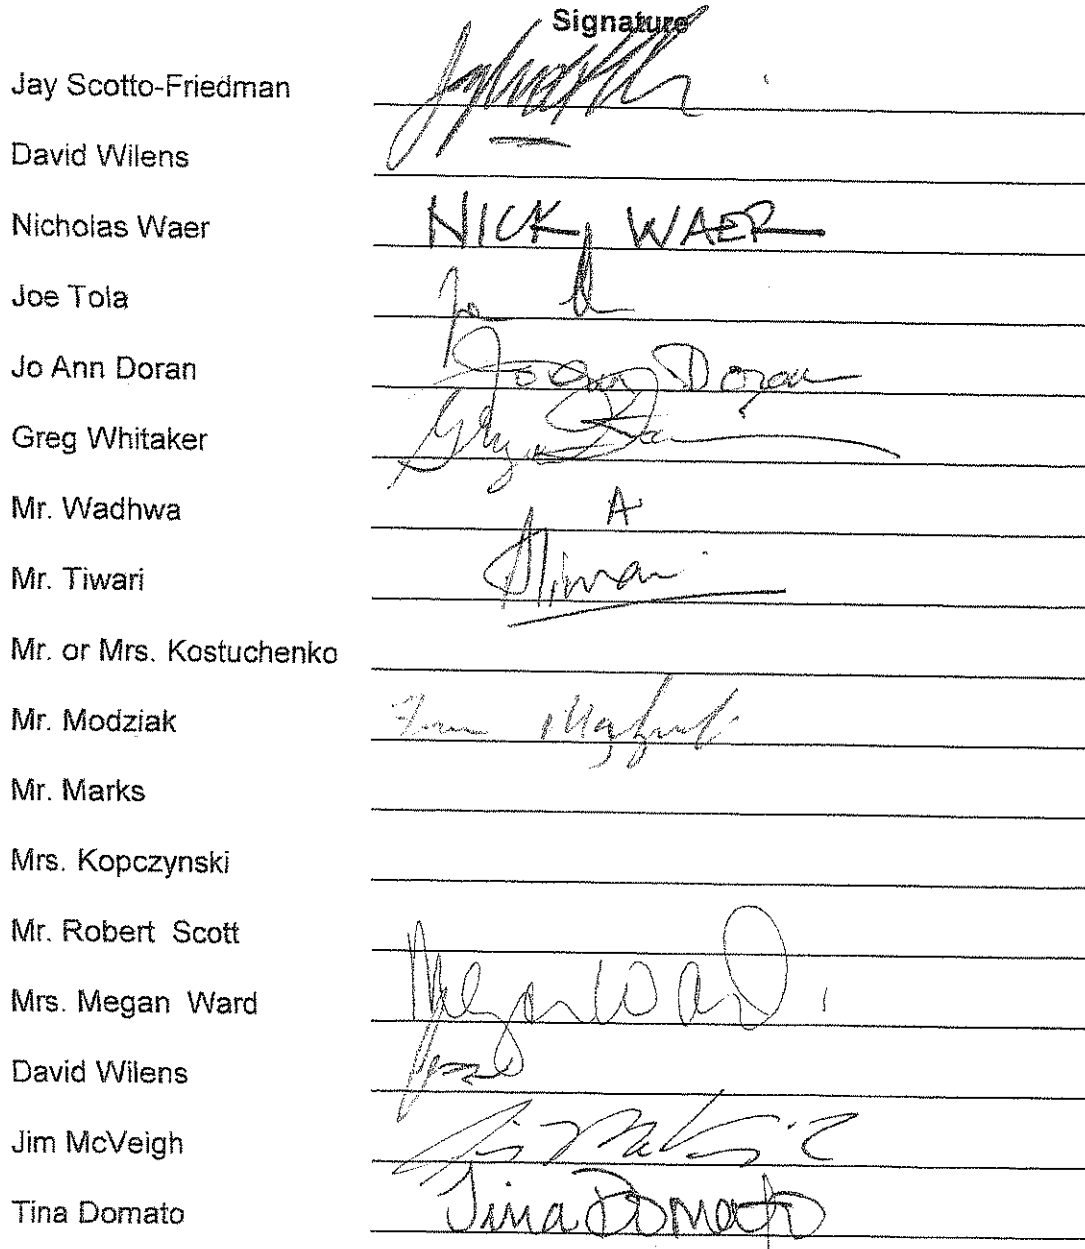 Signature
Jay Scotto-Friedman
David Wilens
Nicholas Waer NICK WAER
Joe Tola
Jo Ann Doran JoAnn Doran
Greg Whitaker
Mr. Wadhwa A
Mr. Tiwari
Mr. or Mrs. Kostuchenko
Mr. Modziak
Mr. Marks
Mrs. Kopczynski
Mr. Robert Scott
Mrs. Megan Ward Megan Ward
David Wilens
Jim McVeigh
Tina Domato Tina Domato